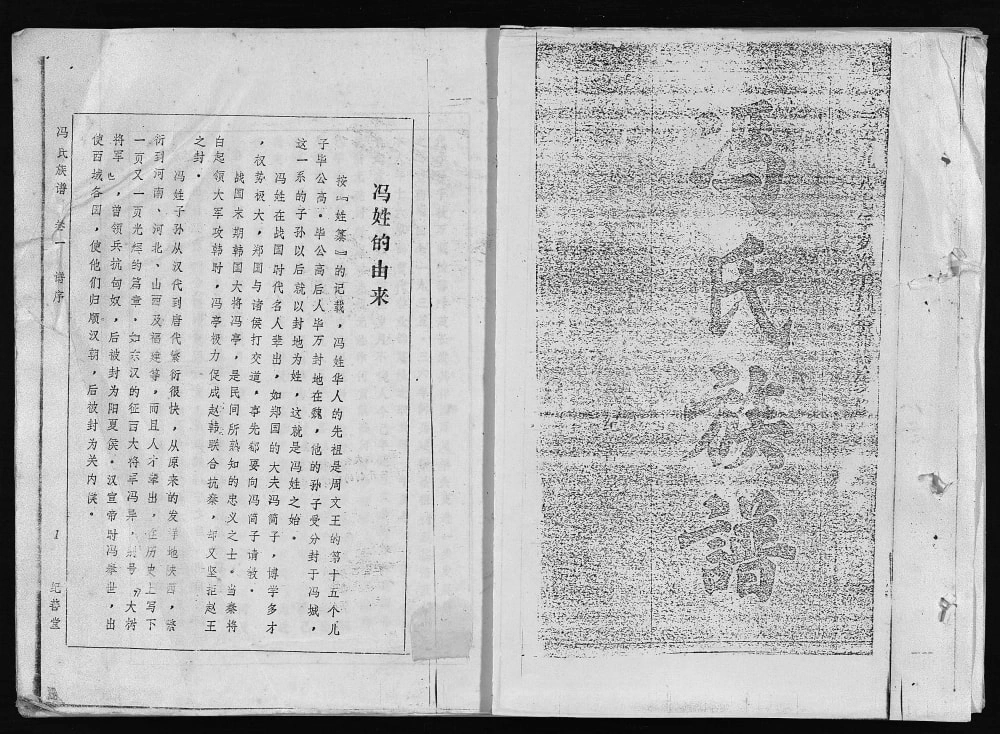 冯氏族谱
冯姓的由来
按『姓纂』的记载，冯姓华人的先祖是周文王的第十五个儿
子毕公高。毕公高后人毕万封地在魏，他的孙子受分封于冯城，
这一系的子孙以后就以封地为姓，这就是冯姓之始。
冯姓在战国时代名人辈出，如郑国的大夫冯简子，博学多才
，权势极大，郑国与诸侯打交道，事先都要向冯简子请教。
战国末期韩国大将冯亭，是民间所熟知的忠义之士。当秦将
白起领大军攻韩时，冯亭极力促成赵韩联合抗秦，却又坚拒赵王
之封。
冯姓子孙从汉代到唐代繁衍很快，从原来的发祥地陕西，繁
衍到河南、河北、山西及福建等，而且人才辈出，在历史上写下
一页又一页光辉的篇章。如东汉的征西大将军冯异，别号“大树
将军”，曾领兵抗匈奴，后被封为阳夏侯。汉宣帝时冯奉世，出
使西域各国，使他们归顺汉朝，后被封为关内侯。
冯氏族谱 卷一 谱序 1 纪 堂